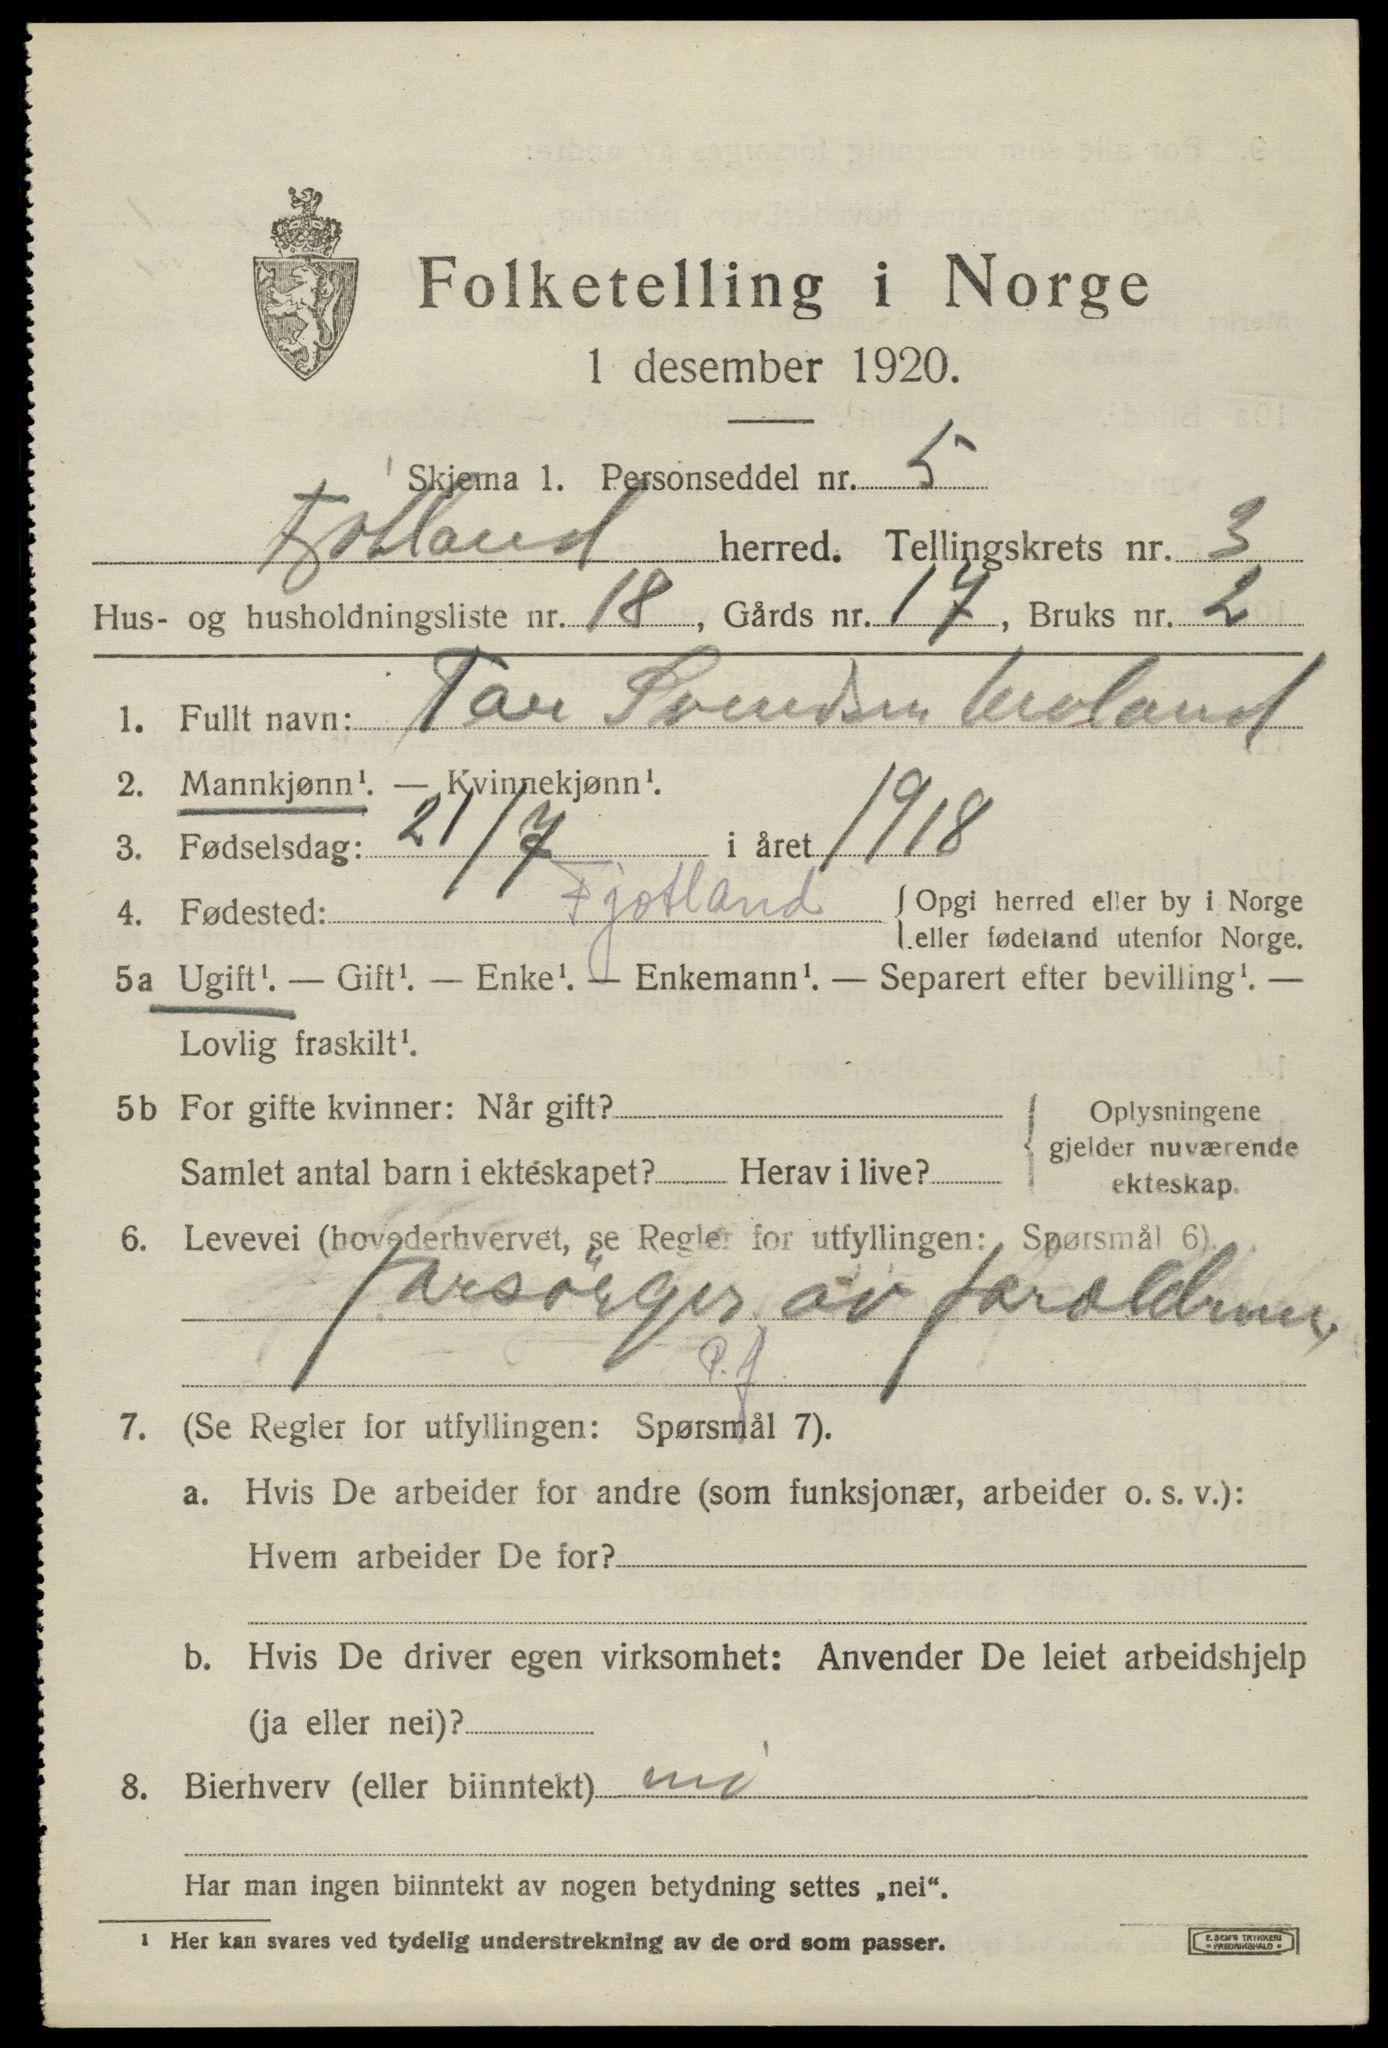 Folketelling i Norge
1 desember 1920.
Skjema 1. Personseddel nr. 5
Fjotland herred. Tellingskrets nr. 3
Hus- og husholdningsliste nr. 18, Gårds nr. 17, Bruks nr. 2
1. Fullt navn: Tor Svendsen
2. Mannkjønn¹. — Kvinnekjønn¹.
3. Fødselsdag: 21/7 i året 1918
4. Fødested: Fjotland { Opgi herred eller by i Norge
eller fødeland utenfor Norge.
5a Ugift¹. — Gift¹. — Enke¹. — Enkemann¹. — Separert efter bevilling¹. —
Lovlig fraskilt¹.
5b For gifte kvinner: Når gift?
Samlet antal barn i ekteskapet? Herav i live?
{ Oplysningene
gjelder nuværende
ekteskap.
6. Levevei (hovederhvervet, se Regler for utfyllingen: Spørsmål 6).
forsørges av foreldrene
P.f
7. (Se Regler for utfyllingen: Spørsmål 7).
a. Hvis De arbeider for andre (som funksjonær, arbeider o. s. v.):
Hvem arbeider De for?
b. Hvis De driver egen virksomhet: Anvender De leiet arbeidshjelp
(ja eller nei)?
8. Bierhverv (eller biinntekt) nei
Har man ingen biinntekt av nogen betydning settes „nei“.
¹ Her kan svares ved tydelig understrekning av de ord som passer.
E. SEM'S TRYKKERI
FREDRIKSHALD